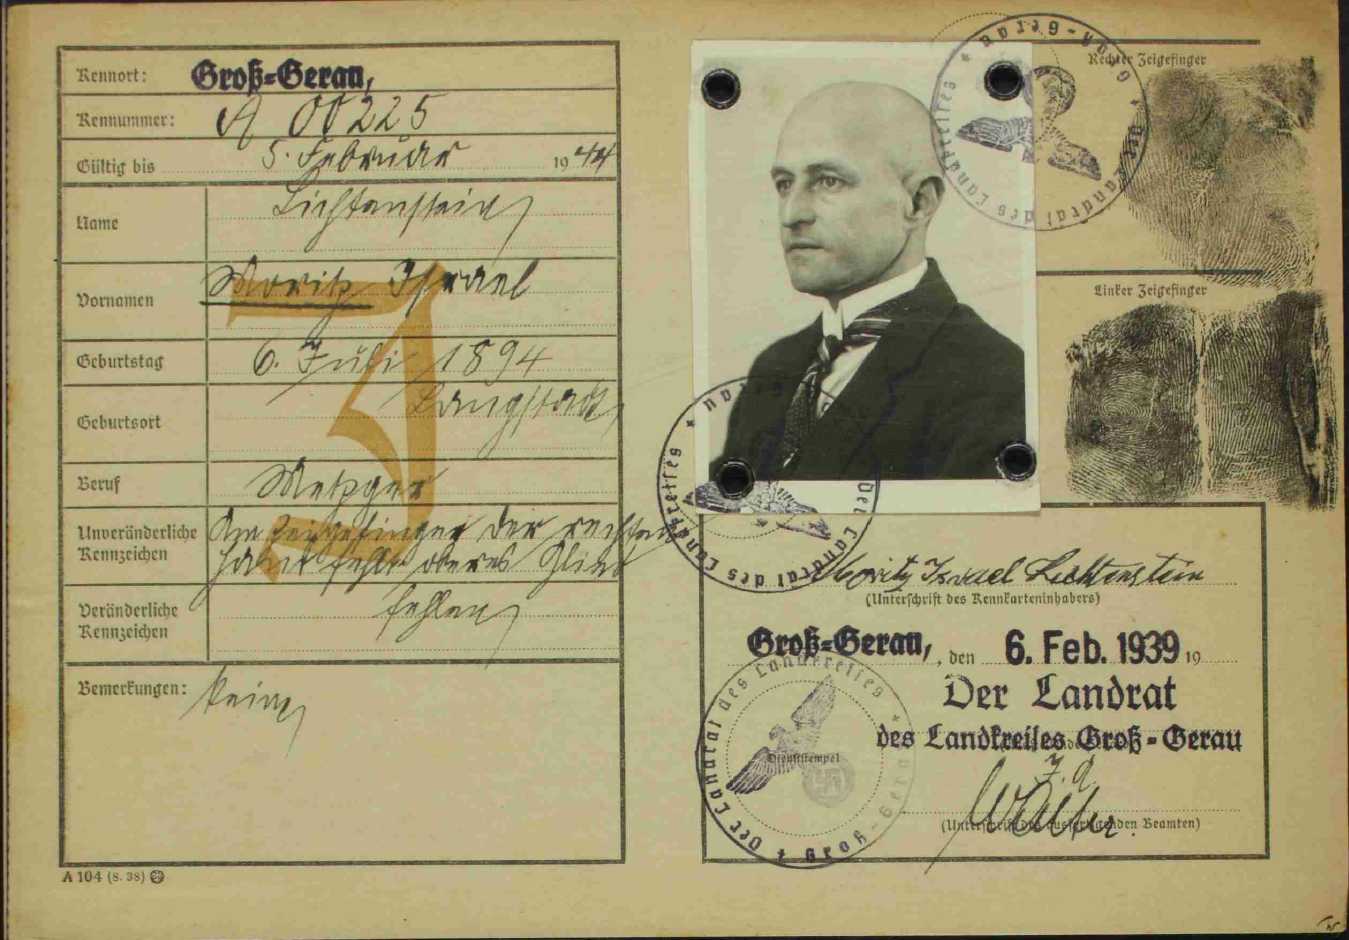 Kennort: Groß-Gerau,
Kennummer: A 00225
Gültig bis 5. Februar 1944
Name Lichtenstein
Vornamen Moritz Israel
Geburtstag 6. Juli 1894
Geburtsort Langstadt
Beruf Metzger
Unveränderliche Kennzeichen Am Zeigefinger der rechten
Hand fehlt oberes Glied
Veränderliche Kennzeichen fehlen
Bemerkungen: keine
A 104 (8. 38)
J
Rechter Zeigefinger
Linker Zeigefinger
Der Landrat des Landkreises * Groß-Gerau *
Der Landrat des Landkreises * Groß-Gerau
Moritz Israel Lichtenstein
(Unterschrift des Kennkarteninhabers)
Groß-Gerau, , den 6. Feb. 1939 19
Der Landrat
des Landkreises Groß-Gerau
Dienststempel
Der Landrat des Landkreises * Groß-Gerau *
J. A.
(Unterschrift des ausfertigenden Beamten)